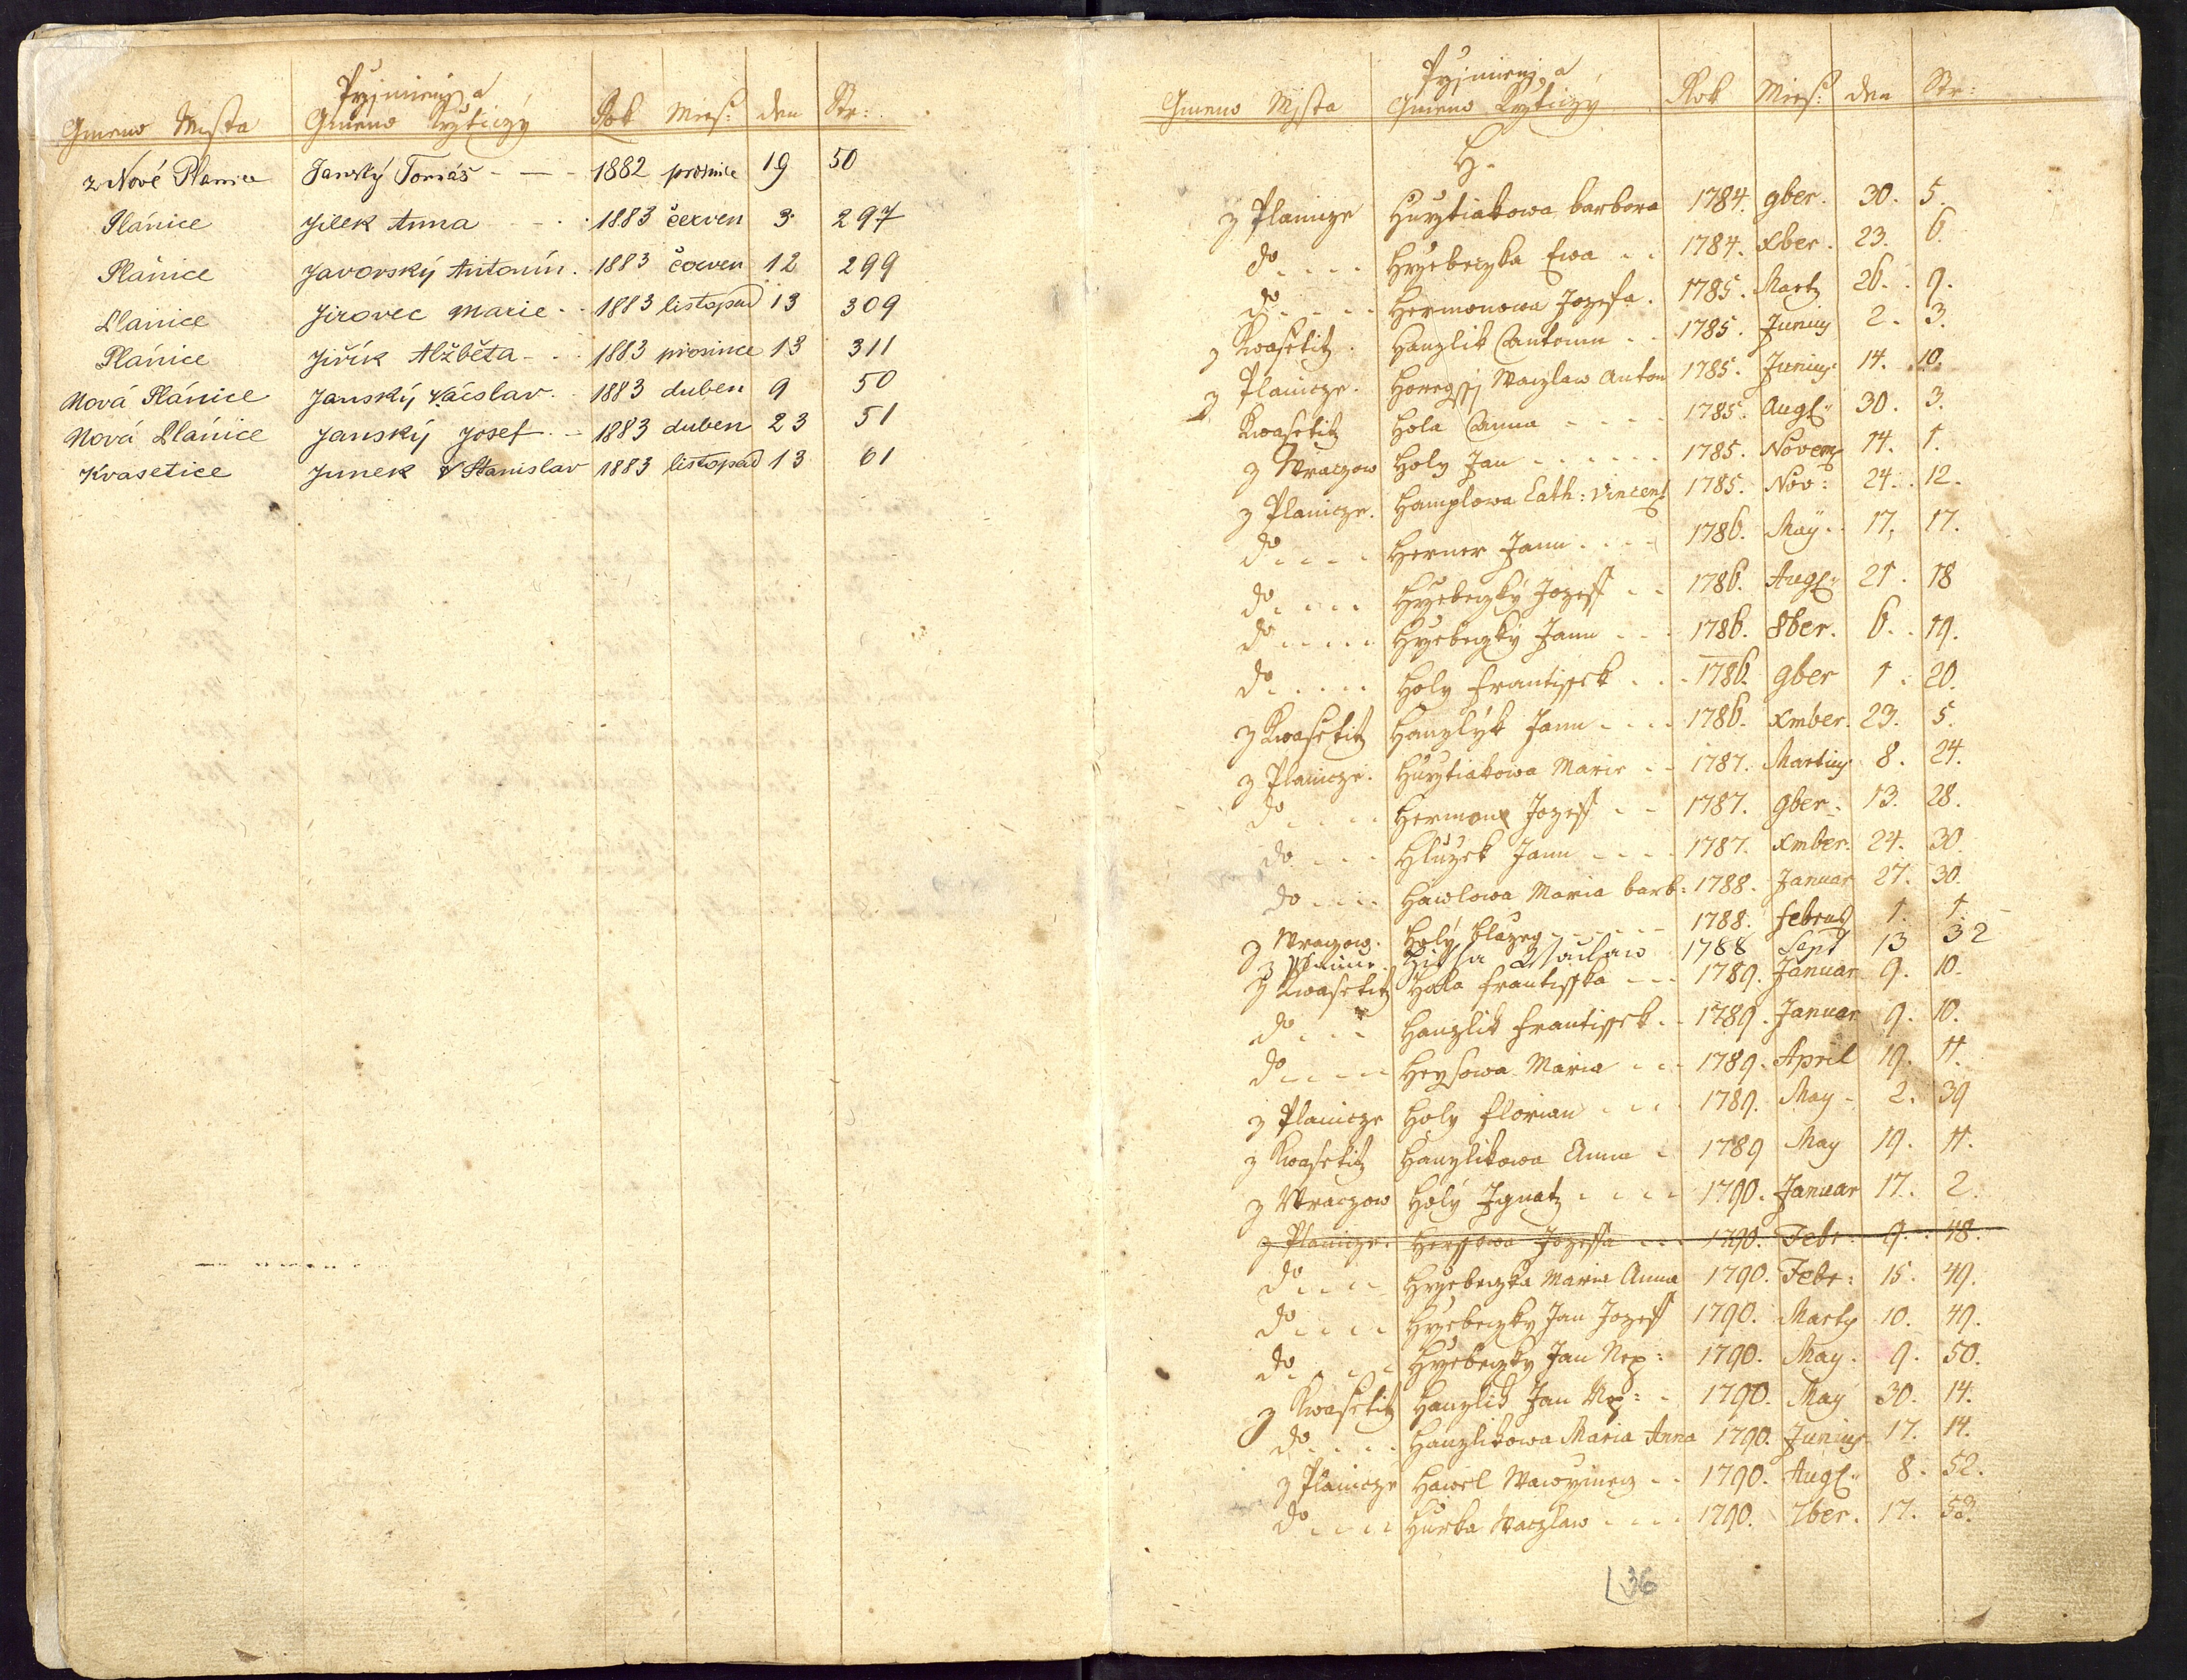 Pryjmienj a
Gmeno Mista Gmeno Krzticzy Rok Mies: den Str:
z Nové Planice Janský Tomáš - — - 1882 prosince 19 50
Plánice Jilek Anna - - - 1883 červen 3. 297
Plánice Javorský Antonín. 1883 červen 12 299
Plánice Jirovec Marie - . 1883 listopad 13 309
Plánice Jiřík Alžběta - . 1883 prosince 13 311
Nová Plánice Janský Václav. 1883 duben 9 50
Nová Plánice Janský Josef - - 1883 duben 23 51
Kvasetice Junek Stanislav 1883 listopad 13 61
Pryjmienj a
Gmeno Mysta Gmeno Krzticzy Rok Mies: den Str:
H.
z Planicze Hurytiakowa barbora 1784. 9ber. 30. 5.
do - - - - Hrzebeczka Ewa - - 1784. Xber. 23. 6.
do - - - - Hermonowa Jozefa. 1785. Marty 26. 9.
z Kwasetitz. Hanzlik Antonin - - 1785. Junius 2. 3.
z Planicze. Waczlaw Anton 1785. Junius 14. 10.
z Kwasetitz Hola Anna - - - - 1785. Aug: 30. 3.
z Wraczow Holy Jan - - - - - - 1785. Novem 14. 1.
z Planicze. Hamplowa Cath: Vincent 1785. Nov: 24. 12.
do - - - - Herner Jann - - - - 1786. May. 17. 17.
do - - - - Hrzebeczky Jozeff - - 1786. Aug: 21. 18
do - - - - Hrzebeczky Jann - - - 1786. 8ber. 6. 19.
do - - - - Holy Frantissek - - - 1786. 9ber 1. 20.
z Kwasetitz Hanzlyk Jann - - - - 1786. Xmber. 23. 5.
z Planicze. Hurytiakowa Marie - - 1787. Martius 8. 24.
do - - - - Hermon Jozeff - - 1787. 9ber. 13. 28.
do - - - Hluzek Jann - - - - 1787. Xmber. 24. 30.
do - - - - Hawlowa Maria barb: 1788. Januar 27. 30.
z Wraczow. Holy blazeg - - - - - - 1788. Februar 1. 1.
z Planice. Waclaw 1788 Sept 13 32
z Kwasetitz Hola Frantisska - - - 1789. Januar 9. 10.
do - - - Hanzlik Frantissek - - 1789. Januar 9. 10.
do - - - - Heysowa Maria - - - 1789. April 19. 11.
z Planicze Holy Florian - - - - 1789. May - 2. 39
z Kwasetitz Hanzlikowa Anna - 1789 May 19. 11.
z Wraczow Holy Ignatz - - - - 1790. Januar 17. 2.
z Planicze. Herssowa Jozeffa - - - 1790. Febr: 9. 48.
do - - - - Hrzebeczka Maria Anna 1790. Febr: 15. 49.
do - - - - Hrzebeczky Jan Jozeff 1790. Marty 10. 49.
do - - - - Hrzebeczky Jan Nep: 1790. May. 9. 50.
z Kwasetitz Hanzlik Jan Nep: - 1790. May 30. 14.
do - - - - Hanzlikowa Maria Anna 1790. Junius 17. 14.
z Planicze Hawel Wawrzinecz - - 1790. Aug: 8. 52.
do - - - - Hurka Waczlaw - - - - 1790. 7ber. 17. 53.
36